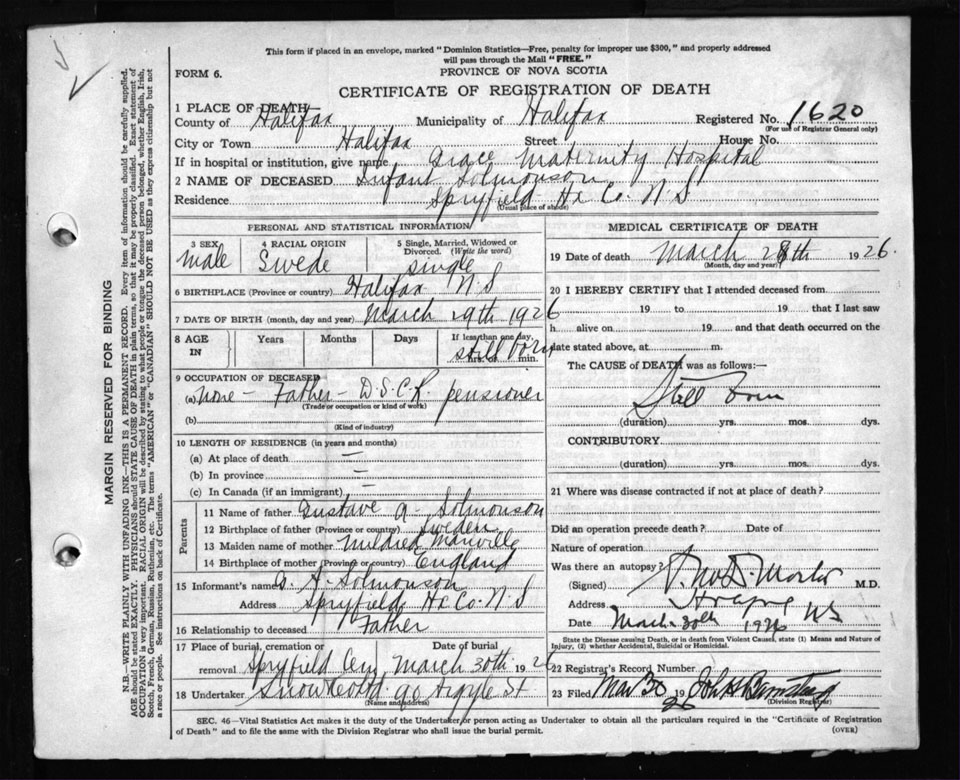 This form if placed in an envelope, marked "Dominion Statistics—Free, penalty for improper use $300," and properly addressed
will pass through the Mail "FREE."
FORM 6.
PROVINCE OF NOVA SCOTIA
CERTIFICATE OF REGISTRATION OF DEATH
1 PLACE OF DEATH—
County of Halifax Municipality of Halifax Registered No. 1620
(For use of Registrar General only)
City or Town Halifax Street House No.
If in hospital or institution, give name Grace Maternity Hospital
2 NAME OF DECEASED Infant Solmonson
Residence Spryfield Hx Co. N S
(Usual place of abode)
PERSONAL AND STATISTICAL INFORMATION
3 SEX 4 RACIAL ORIGIN 5 Single, Married, Widowed or
Divorced. (Write the word)
Male Swede single
6 BIRTHPLACE (Province or country) Halifax N.S
7 DATE OF BIRTH (month, day and year) March 29th 1926
8 AGE IN Years Months Days If less than one day,
hrs. or min.
still born
9 OCCUPATION OF DECEASED
(a) None — Father — D.S.C.R. pensioner
(Trade or occupation or kind of work)
(b)
(Kind of industry)
10 LENGTH OF RESIDENCE (in years and months)
(a) At place of death —
(b) In province —
(c) In Canada (if an immigrant)
Parents
11 Name of father Gustave A- Solmonson
12 Birthplace of father (Province or country) Sweden
13 Maiden name of mother Mildred Manville
14 Birthplace of mother (Province or country) England
15 Informant's name G. A. Solmonson
Address Spryfield, Hx Co. N S
16 Relationship to deceased Father
17 Place of burial, cremation or removal Date of burial
Spryfield Cem March 30th 1926
18 Undertaker Snow & Co Ltd. 90 Argyle St
(Name and address)
MEDICAL CERTIFICATE OF DEATH
19 Date of death March 28th 1926.
(Month, day and year)
20 I HEREBY CERTIFY that I attended deceased from
19 to 19 that I last saw
h alive on 19 and that death occurred on the
date stated above, at m.
The CAUSE of DEATH was as follows:—
Still born
(duration) yrs. mos. dys.
CONTRIBUTORY
(duration) yrs. mos. dys.
21 Where was disease contracted if not at place of death?
Did an operation precede death? Date of
Nature of operation
Was there an autopsy?
(Signed) M.D.
Address NS
Date March 30th 1926
State the Disease causing Death, or in death from Violent Causes, state (1) Means and Nature of
Injury, (2) whether Accidental, Suicidal or Homicidal.
22 Registrar's Record Number
23 Filed Mar 30 1926
(Division Registrar)
SEC. 46—Vital Statistics Act makes it the duty of the Undertaker or person acting as Undertaker to obtain all the particulars required in the "Certificate of Registration
of Death" and to file the same with the Division Registrar who shall issue the burial permit.
(OVER)
MARGIN RESERVED FOR BINDING
N.B.—WRITE PLAINLY WITH UNFADING INK—THIS IS A PERMANENT RECORD. Every item of information should be carefully supplied.
AGE should be stated EXACTLY. PHYSICIANS should STATE CAUSE OF DEATH in plain terms, so that it may be properly classified. Exact statement of
OCCUPATION is very important. RACIAL ORIGIN will be described by stating to what people or tongue the deceased person belonged, whether English, Irish,
Scotch, French, German, Russian, Ruthenian, etc. The terms "AMERICAN" or "CANADIAN" SHOULD NOT BE USED as they express citizenship but not
a race or people. See instructions on back of Certificate.